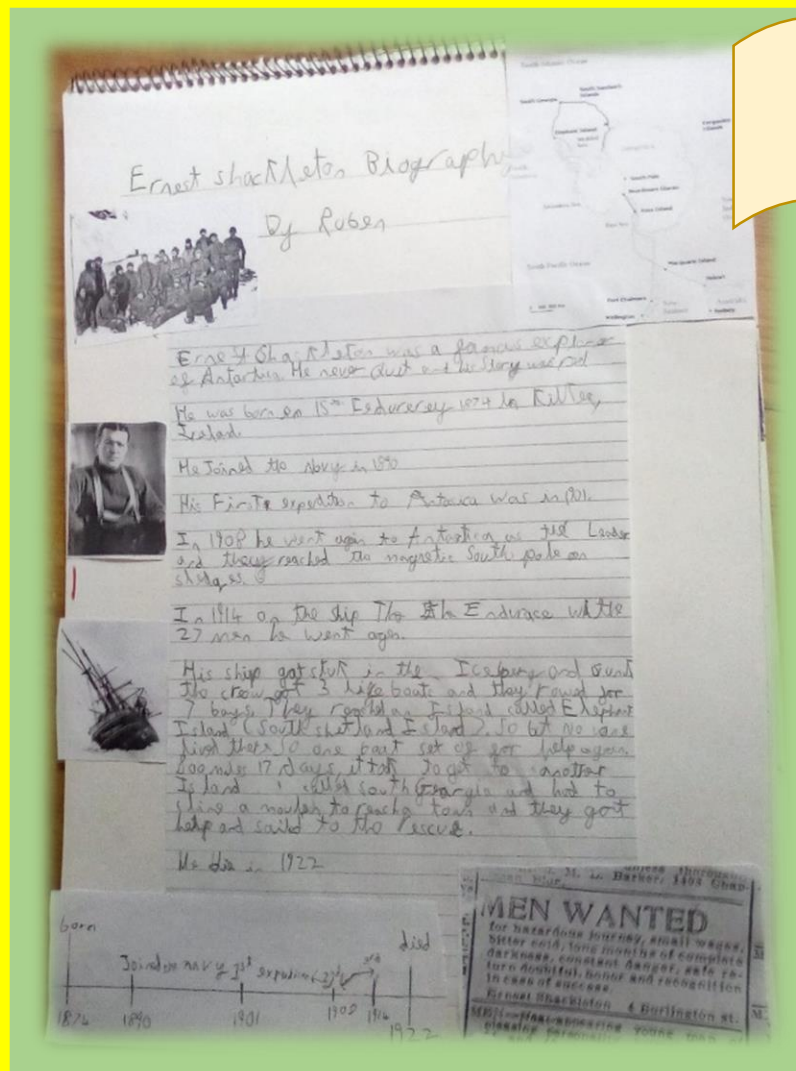 Ernest shackleton Biography
By Ruben
South Georgia
South Sandwich
Islands
Elephant Island
South Pole
Ross Island
Macquarie Island
Port Chalmers
Wellington
Sydney
Ernest Shackleton was a famous explorer
of Antartica. He never and his story
He was born on 15th 1874 in
Ireland
He Joined the Navy in 1890
His First expedition to was in 1901.
In 1908 he went agin to Antartica as the Leader
and they reached the magnetic South pole on
sledges.
In 1914 on the ship The Endurace with
27 men he went agen.
His ship got stuk in the and
the crew got 3 life boats and they rowed for
7 bays. They reached an Island called Elephant
Island (South shetland Island). So but no one
lived there so one boat set of for help agen.
800 miles 17 days it tok to get to another
Island called South Georgia and had to
a to reach a town and they got
help and saild to the rescue.
He die in 1922
born
Joined navy 1st expedition
died
1874 1890 1901 1908 1914 1922
M. L. Barker, 1403
MEN WANTED
for hazardous journey, small wages,
bitter cold, long months of complete
darkness, constant danger, safe re-
turn doubtful, honor and recognition
in case of success.
Ernest Shackleton 4 Burlington st.